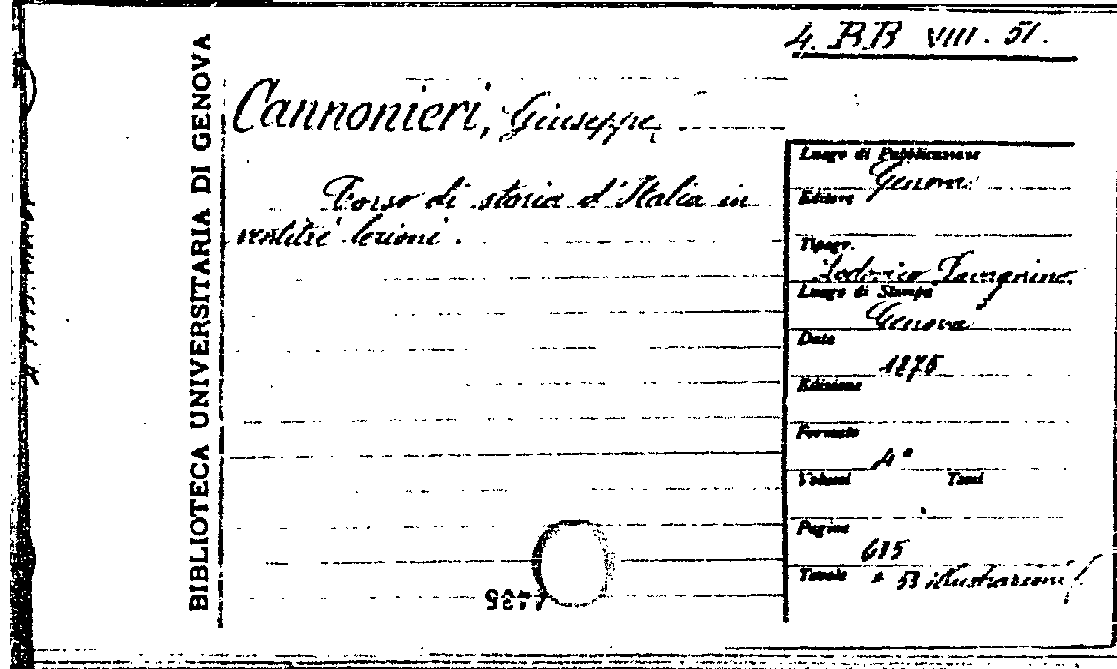 4. BB VIII. 51.
BIBLIOTECA UNIVERSITARIA DI GENOVA
Cannonieri, Giuseppe,
Corso di storia d'Italia in
ventitrè lezioni.
Luogo di Pubblicazione
Genova
Editore
Tipogr.
Lodovico Lavagnino
Luogo di Stampa
Genova
Data
1875
Edizione
Formato
4°
Volumi Tomi
Pagine
615
Tavole 53 illustrazioni